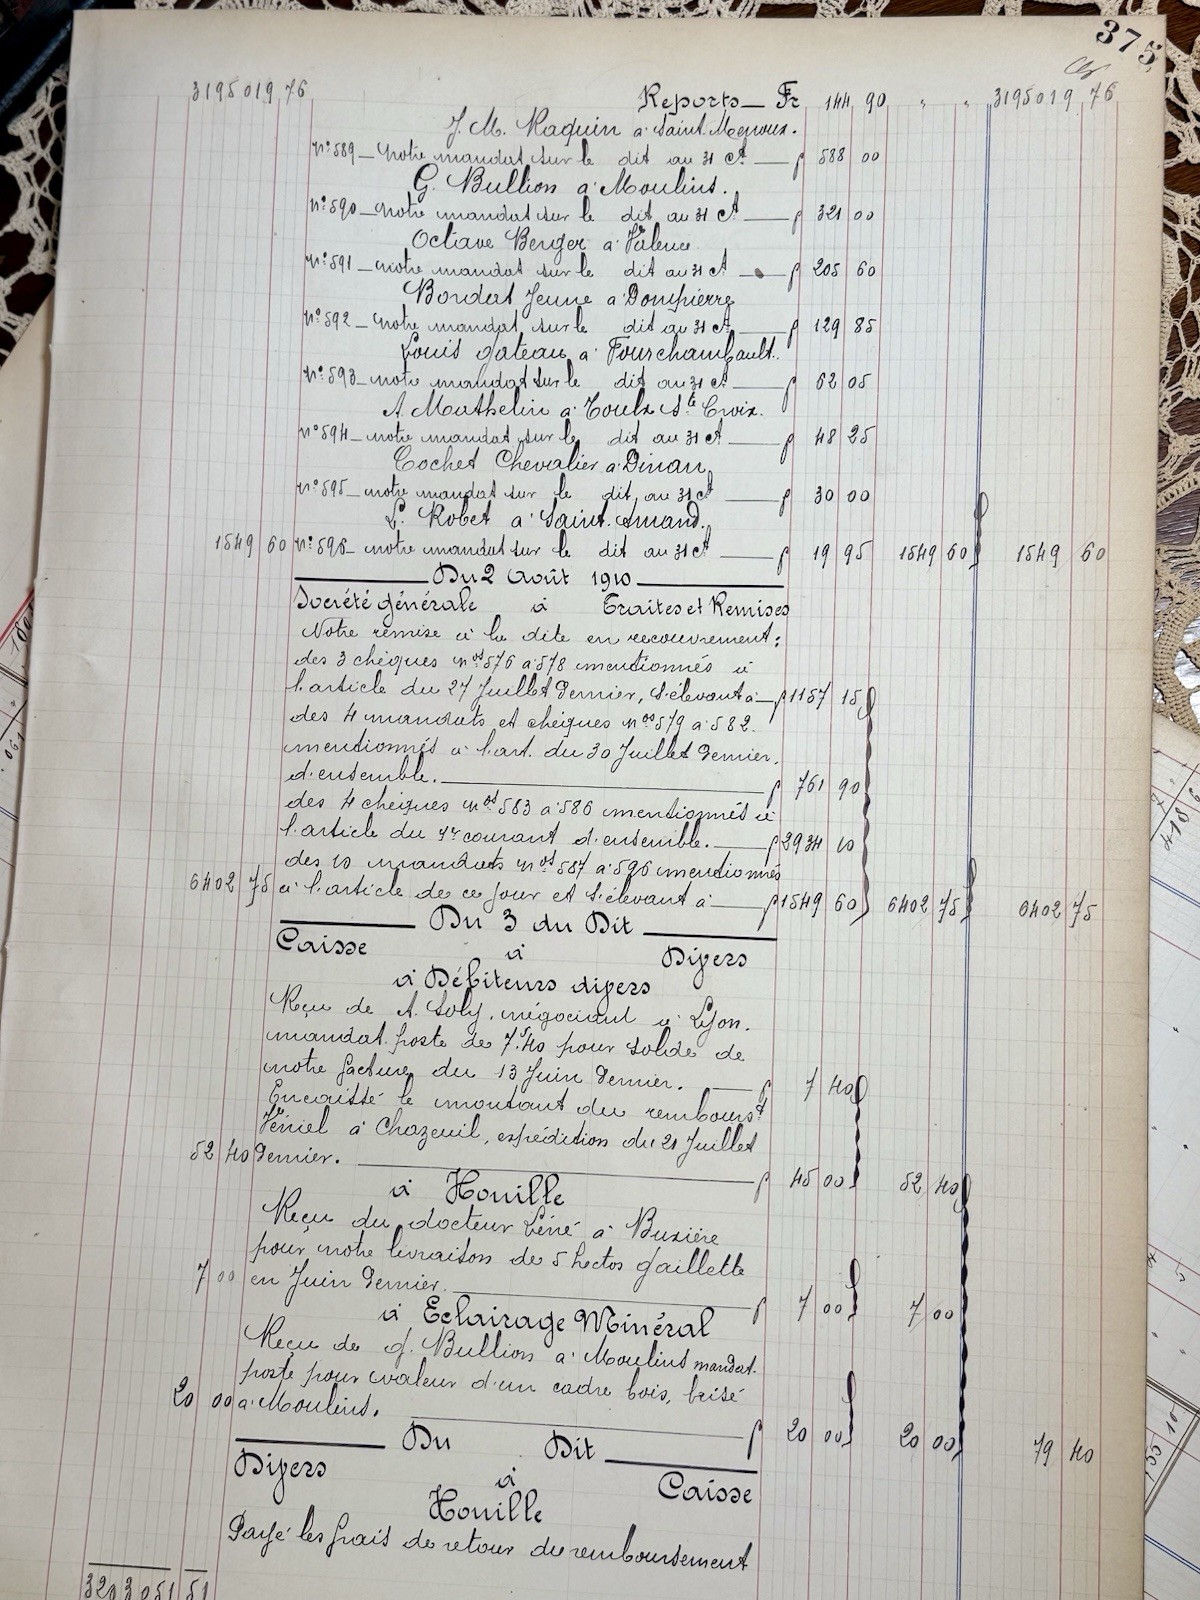 375
3195019 76 Reports Fr 144 90 " " 3195019 76
J. M. Raquin à Saint
N° 589 notre mandat sur le dit au 31 ct f 588 00
G. Bullion à Moulins.
N° 590 notre mandat sur le dit au 31 ct f 321 00
Octave Berger à Valence
N° 591 notre mandat sur le dit au 31 ct f 205 60
Bondat Jeune à Dompierre
N° 592 notre mandat sur le dit au 31 ct f 129 85
Louis Gateau à Fourchambault.
N° 593 notre mandat sur le dit au 31 ct f 62 05
A. Mathelin à Toulx Ste Croix.
N° 594 notre mandat sur le dit au 31 ct f 48 25
Cochet Chevalier à Dinan
N° 595 notre mandat sur le dit au 31 ct f 30 00
L. Robet à Saint-Amand.
1549 60 N° 596 notre mandat sur le dit au 31 ct f 19 95 1549 60 1549 60
Du 2 Août 1910
Société générale à Traites et Remises
Notre remise à la dite en recouvrement:
des 3 chèques nos 576 à 578 mentionnés à
l'article du 27 Juillet dernier, s'élevant à f 1157 15
des 4 mandats et chèques nos 579 à 582
mentionnés à l'art. du 30 Juillet dernier,
d'ensemble. f 761 90
des 4 chèques nos 583 à 586 mentionnés à
l'article du 1er courant d'ensemble. f 2934 10
des 10 mandats nos 587 à 596 mentionnés
6402 75 à l'article de ce jour et s'élevant à f 1549 60 6402 75 6402 75
Du 3 du Dit
Caisse à Divers
à Débiteurs divers
Reçu de A. Soly, négociant à Lyon,
mandat poste de 7f.40 pour solde de
notre facture du 13 Juin dernier. f 7 40
Encaissé le montant du rembourst
Vériel à Chazeuil, expédition du 21 Juillet
52 40 dernier. f 45 00 52 40
à Houille
Reçu du docteur Léné à Buxière
pour notre livraison de 5 hectos gaillette
7 00 en Juin dernier. f 7 00 7 00
à Eclairage Minéral
Reçu de G. Bullion à Moulins mandat
poste pour valeur d'un cadre bois, brisé
20 00 à Moulins. f 20 00 20 00 79 40
Du Dit
Divers à Caisse
Houille
Payé les frais de retour du remboursement
3203051 51